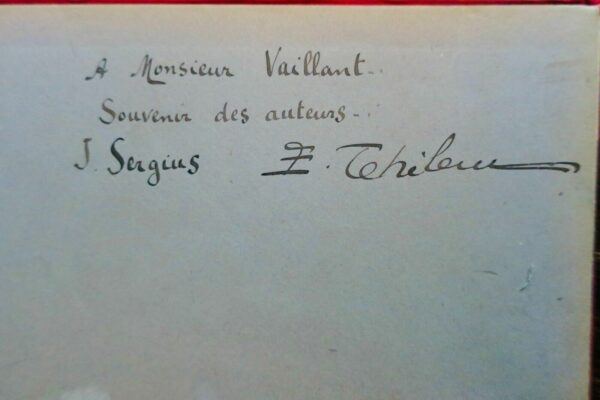 A Monsieur Vaillant..
Souvenir des auteurs-.
J. Sergius